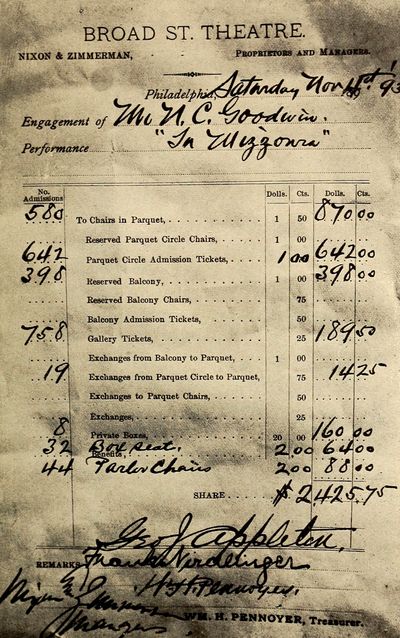 BROAD ST. THEATRE.
NIXON & ZIMMERMAN, PROPRIETORS AND MANAGERS.
Philadelphia, Saturday Nov 189
Engagement of Mr N. C. Goodwin.
Performance "In Mizzoura"
No. Admissions Dolls. Cts. Dolls. Cts.
580 To Chairs in Parquet, 1 50 870 00
Reserved Parquet Circle Chairs, 1 00
642 Parquet Circle Admission Tickets, 1 00 642 00
398 Reserved Balcony, 1 00 398 00
Reserved Balcony Chairs, 75
Balcony Admission Tickets, 50
758 Gallery Tickets, 25 189 50
Exchanges from Balcony to Parquet, 1 00
19 Exchanges from Parquet Circle to Parquet, 75 14 25
Exchanges to Parquet Chairs, 50
Exchanges, 25
8 Private Boxes, 20 00 160 00
32 Benefits, Box seat. 2 00 64 00
44 Parlor Chairs 2 00 88 00
SHARE $ 2425.75
Geo J. Appleton.
REMARKS Frank Nirdlinger
H. H. Pennoyer.
Nixon &
Managers
WM. H. PENNOYER, Treasurer.